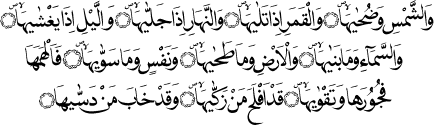 وَالشَّمْسِ وَضُحٰىهَا ۝ وَالْقَمَرِ اِذَا تَلٰىهَا ۝ وَالنَّهَارِ اِذَا جَلّٰىهَا ۝ وَالَّيْلِ اِذَا يَغْشٰىهَا ۝
وَالسَّمَآءِ وَمَا بَنٰىهَا ۝ وَالْاَرْضِ وَمَا طَحٰىهَا ۝ وَنَفْسٍ وَمَا سَوّٰىهَا ۝ فَاَلْهَمَهَا
فُجُورَهَا وَتَقْوٰىهَا ۝ قَدْ اَفْلَحَ مَنْ زَكّٰىهَا ۝ وَقَدْ خَابَ مَنْ دَسّٰىهَا